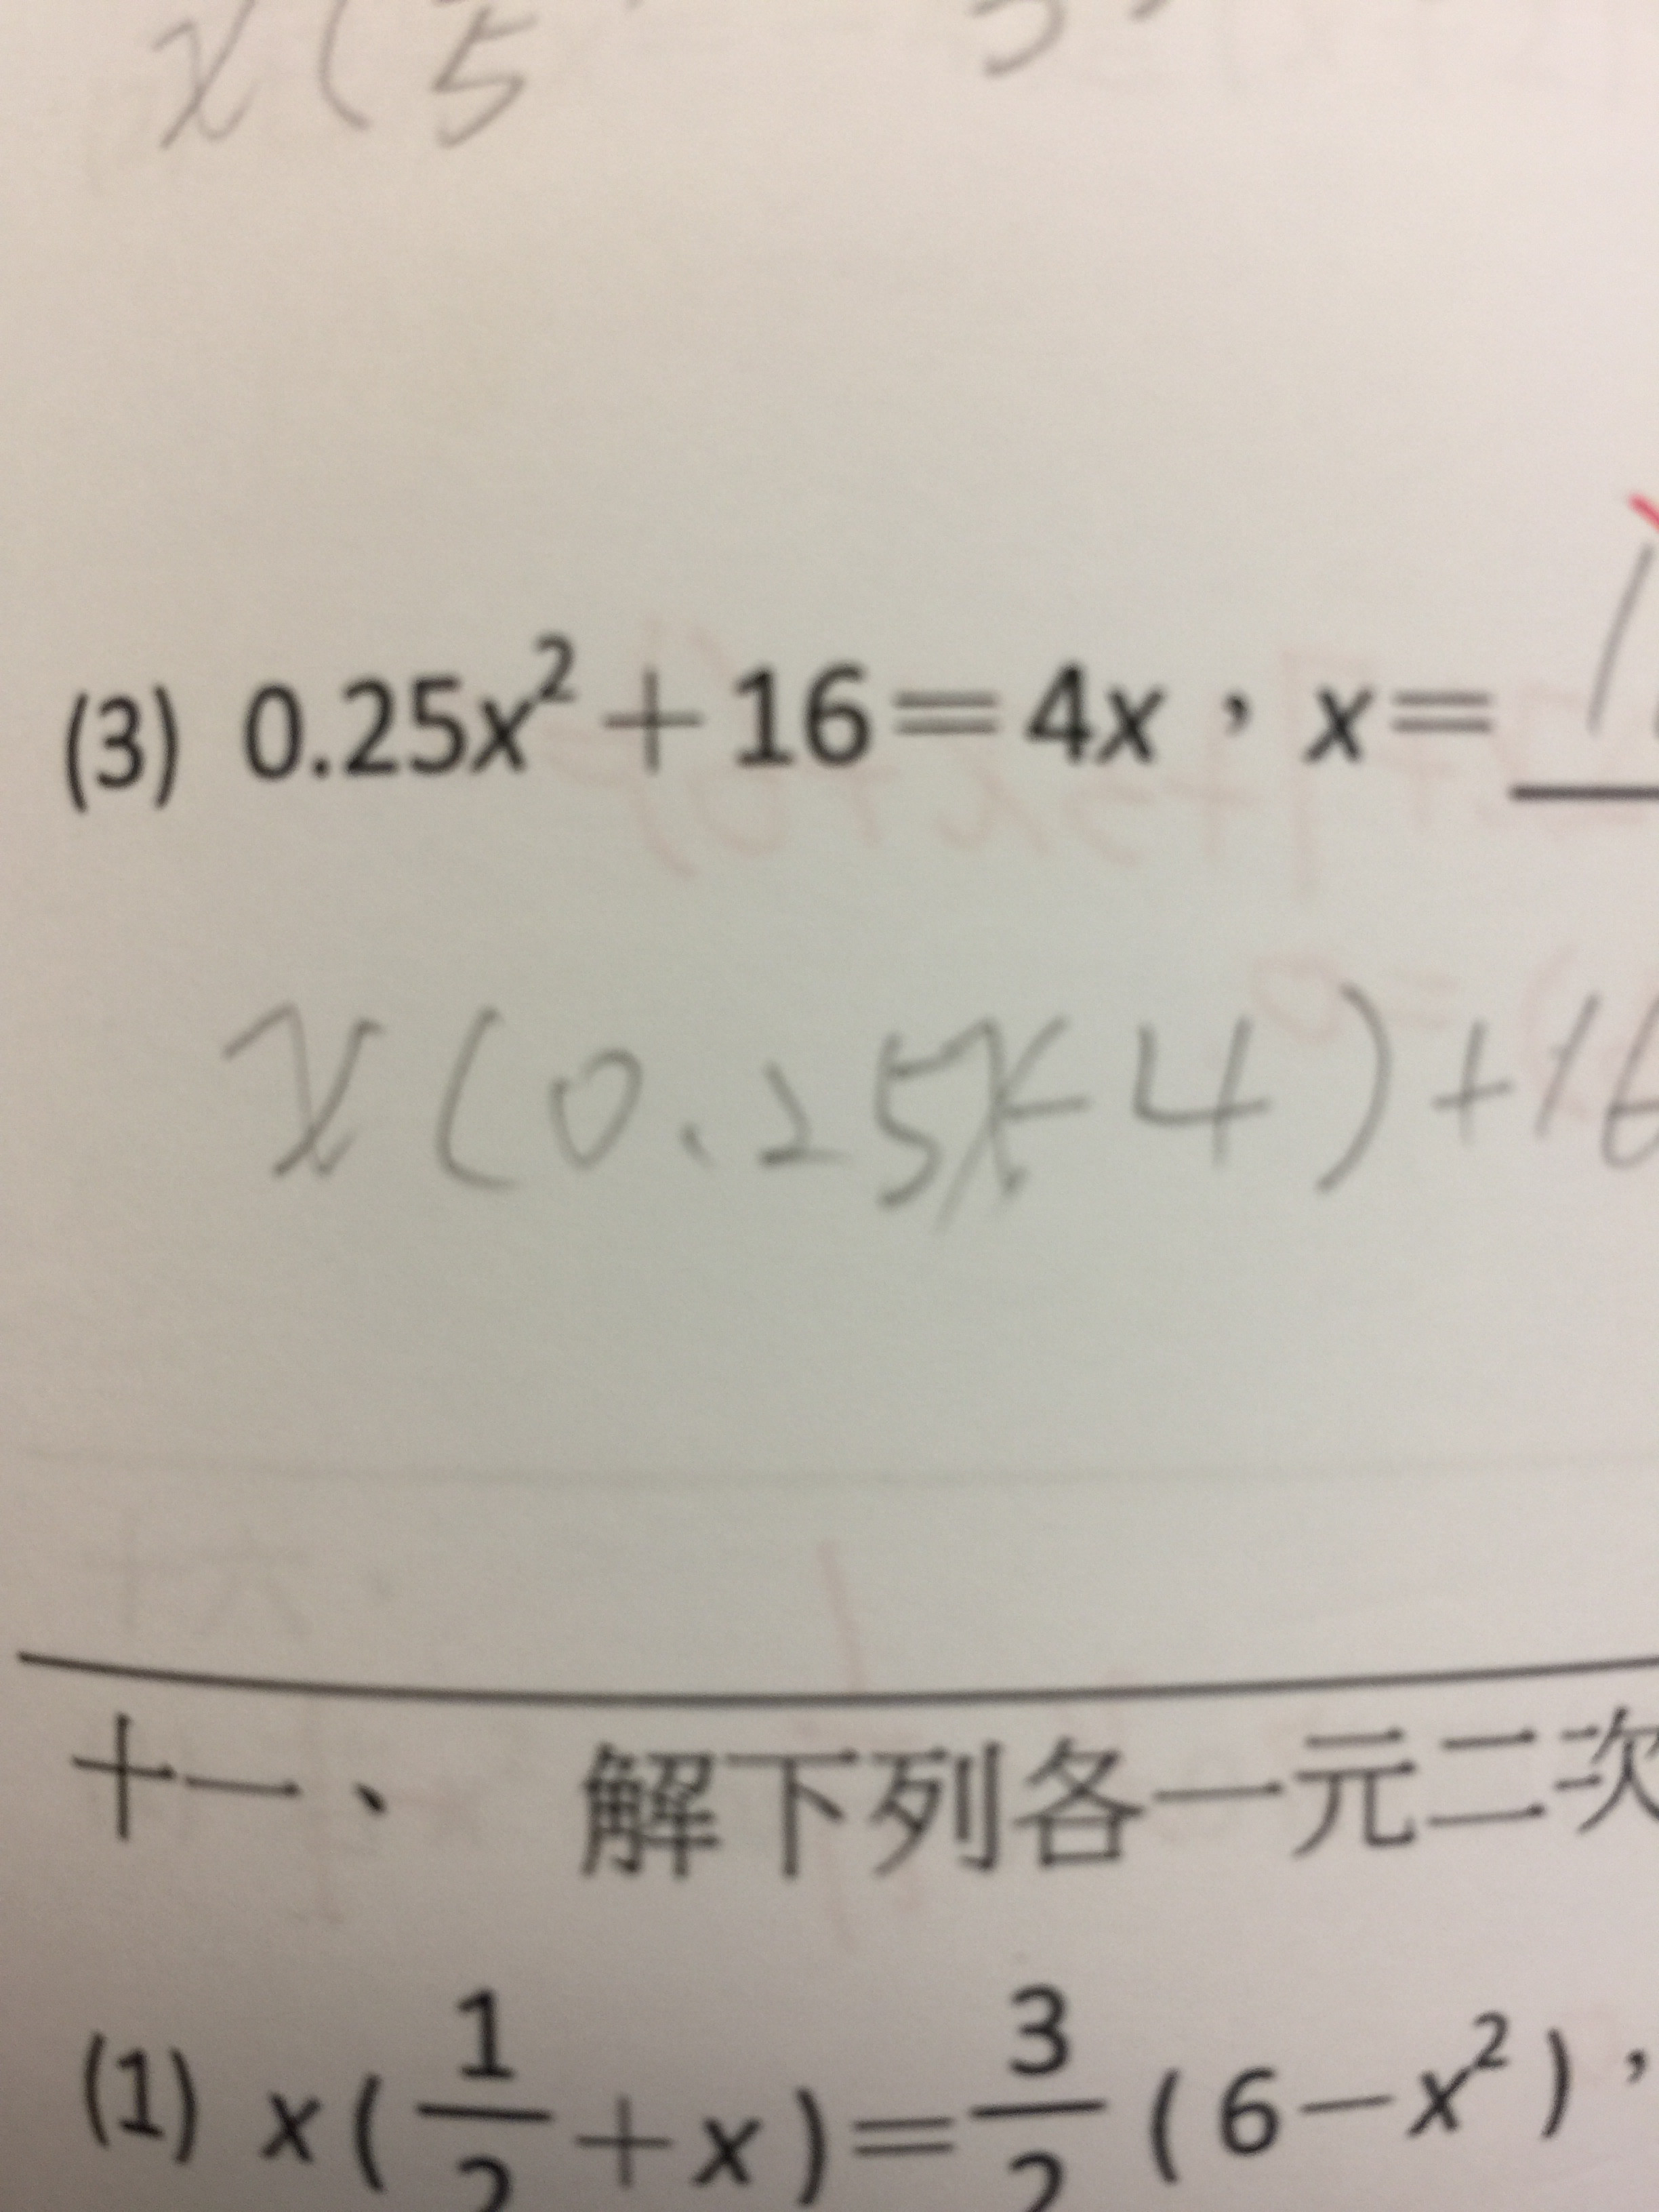 x(5
(3) 0.25x²+16=4x，x=1
x(0.25x-4)+16
十一、 解下列各一元二次
(1) x(1/2+x)=3/2(6-x²)，